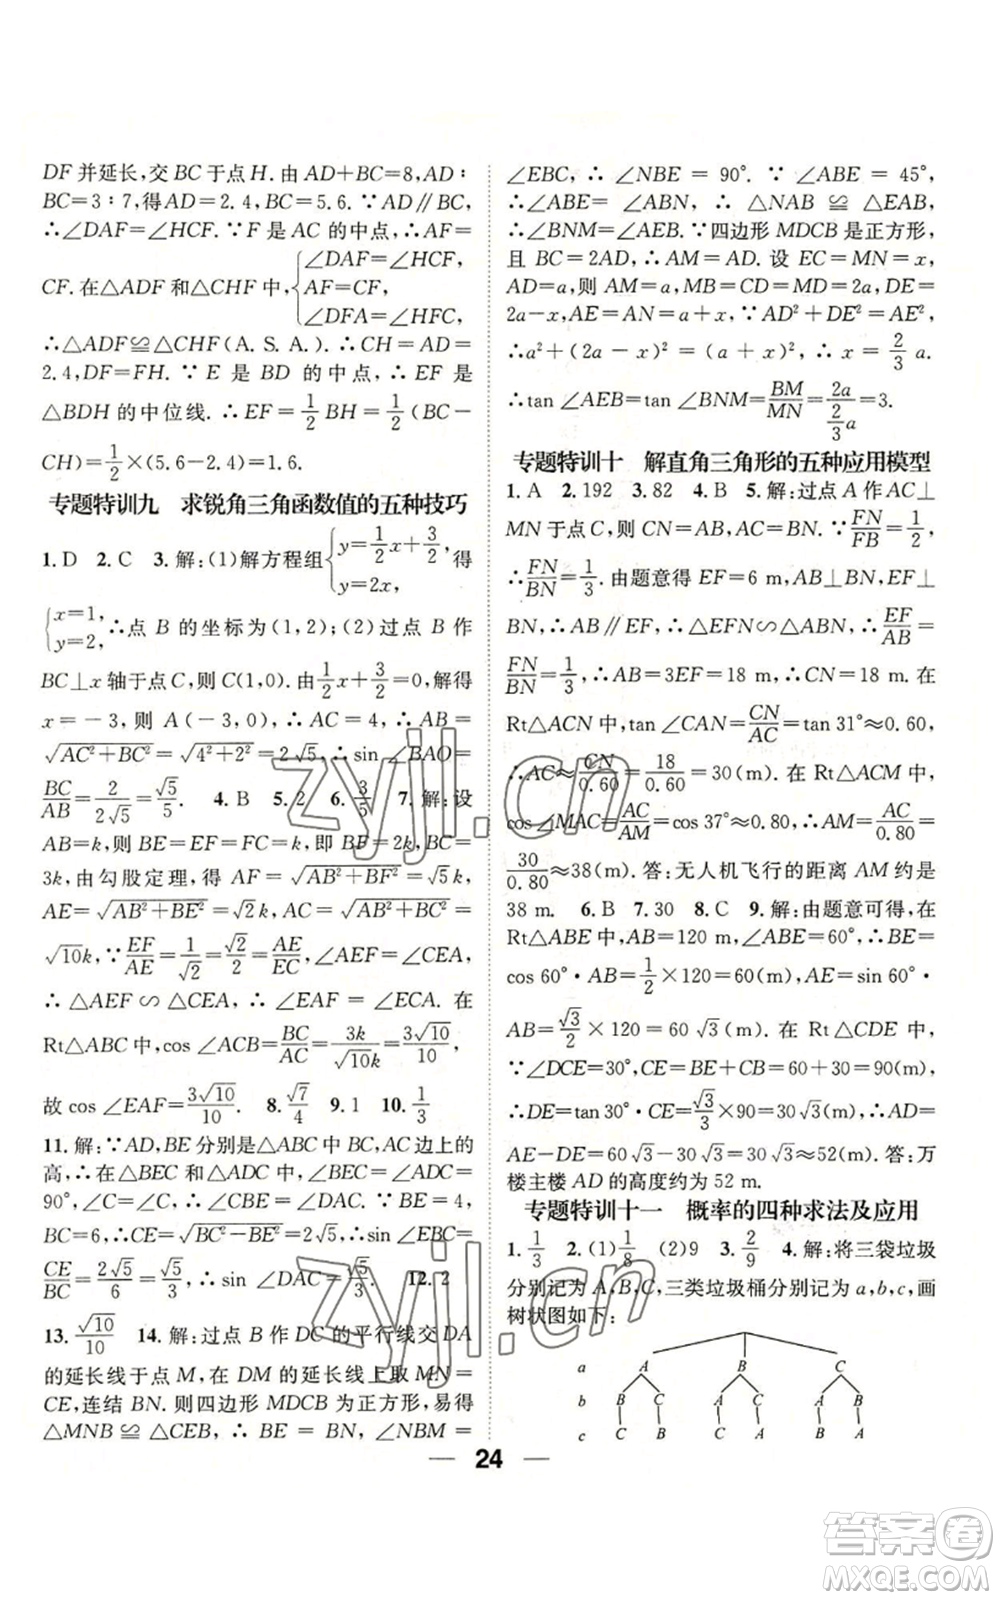 DF 并延长,交 BC 于点 H. 由 AD+BC=8,AD:
BC=3:7,得AD=2.4,BC=5.6. ∵AD∥BC,
∴∠DAF=∠HCF. ∵F 是 AC 的中点,∴AF=
CF. 在△ADF 和△CHF 中,{∠DAF=∠HCF, AF=CF, ∠DFA=∠HFC,
∴△ADF≌△CHF(A.S.A.). ∴CH=AD=
2.4,DF=FH. ∵E 是 BD 的中点,∴EF 是
△BDH 的中位线. ∴EF=1/2 BH=1/2(BC-
CH)=1/2×(5.6-2.4)=1.6.
专题特训九 求锐角三角函数值的五种技巧
1. D 2. C 3. 解:(1)解方程组{y=1/2x+3/2, y=2x, 得
{x=1, y=2, ∴点 B 的坐标为(1,2);(2)过点 B 作
BC⊥x 轴于点C,则 C(1,0). 由1/2x+3/2=0,解得
x=-3,则 A(-3,0),∴AC=4,∴AB=
√(AC²+BC²)=√(4²+2²)=2√5,∴sin ∠BAO=
BC/AB=2/(2√5)=√5/5. 4. B 5. 2 6. 3/5 7. 解:设
AB=k,则 BE=EF=FC=k,即 BF=2k,BC=
3k,由勾股定理,得 AF=√(AB²+BF²)=√5k,
AE=√(AB²+BE²)=√2k,AC=√(AB²+BC²)=
√10k,∵EF/AE=1/√2=√2/2=AE/EC,
∴△AEF∽△CEA,∴∠EAF=∠ECA. 在
Rt△ABC 中,cos ∠ACB=BC/AC=3k/(√10k)=3√10/10,
故 cos ∠EAF=3√10/10. 8. √7/4 9. 1 10. 1/3
11. 解:∵AD,BE 分别是△ABC 中 BC,AC 边上的
高,∴在△BEC 和△ADC 中,∠BEC=∠ADC=
90°,∠C=∠C,∴∠CBE=∠DAC. ∵BE=4,
BC=6,∴CE=√(BC²-BE²)=2√5,∴sin ∠CBE=
CE/BC=2√5/6=√5/3,∴sin ∠DAC=√5/3. 12. 2
13. √10/10 14. 解:过点 B 作 DC 的平行线交 DA
的延长线于点 M,在 DM 的延长线上取 MN=
CE,连结 BN. 则四边形 MDCB 为正方形,易得
△MNB≌△CEB,∴BE=BN,∠NBM=
∠EBC,∴∠NBE=90°. ∵∠ABE=45°,
∴∠ABE=∠ABN,∴△NAB≌△EAB,
∴∠BNM=∠AEB. ∵四边形 MDCB 是正方形,
且 BC=2AD,∴AM=AD. 设 EC=MN=x,
AD=a,则 AM=a,MB=CD=MD=2a,DE=
2a-x,AE=AN=a+x,∵AD²+DE²=AE²,
∴a²+(2a-x)²=(a+x)²,∴x=2/3 a.
∴tan ∠AEB=tan ∠BNM=BM/MN=2a/(2/3 a)=3.
专题特训十 解直角三角形的五种应用模型
1. A 2. 192 3. 82 4. B 5. 解:过点 A 作 AC⊥
MN 于点 C,则 CN=AB,AC=BN. ∵FN/FB=1/2,
∴FN/BN=1/3. 由题意得 EF=6 m,AB⊥BN,EF⊥
BN,∴AB∥EF,∴△EFN∽△ABN,∴EF/AB=
FN/BN=1/3,∴AB=3EF=18 m. ∴CN=18 m. 在
Rt△ACN 中,tan ∠CAN=CN/AC=tan 31°≈0.60,
∴AC≈CN/0.60=18/0.60=30(m). 在 Rt△ACM 中,
cos ∠MAC=AC/AM=cos 37°≈0.80,∴AM≈AC/0.80=
30/0.80≈38(m). 答:无人机飞行的距离 AM 约是
38 m. 6. B 7. 30 8. C 9. 解:由题意可得,在
Rt△ABE 中,AB=120 m,∠ABE=60°,∴BE=
cos 60°·AB=1/2×120=60(m),AE=sin 60°·
AB=√3/2×120=60√3(m). 在 Rt△CDE 中,
∵∠DCE=30°,CE=BE+CB=60+30=90(m),
∴DE=tan 30°·CE=√3/3×90=30√3(m),∴AD=
AE-DE=60√3-30√3=30√3≈52(m). 答:万
楼主楼 AD 的高度约为 52 m.
专题特训十一 概率的四种求法及应用
1. 1/3 2. (1)1/8 (2)9 3. 2/9 4. 解:将三袋垃圾
分别记为 A,B,C,三类垃圾桶分别记为 a,b,c,画
树状图如下:
a A B C
b B C A C A B
c C B C A B A
24
zyjl.cn
zyjl.cn
答案圈
MXQE.COM